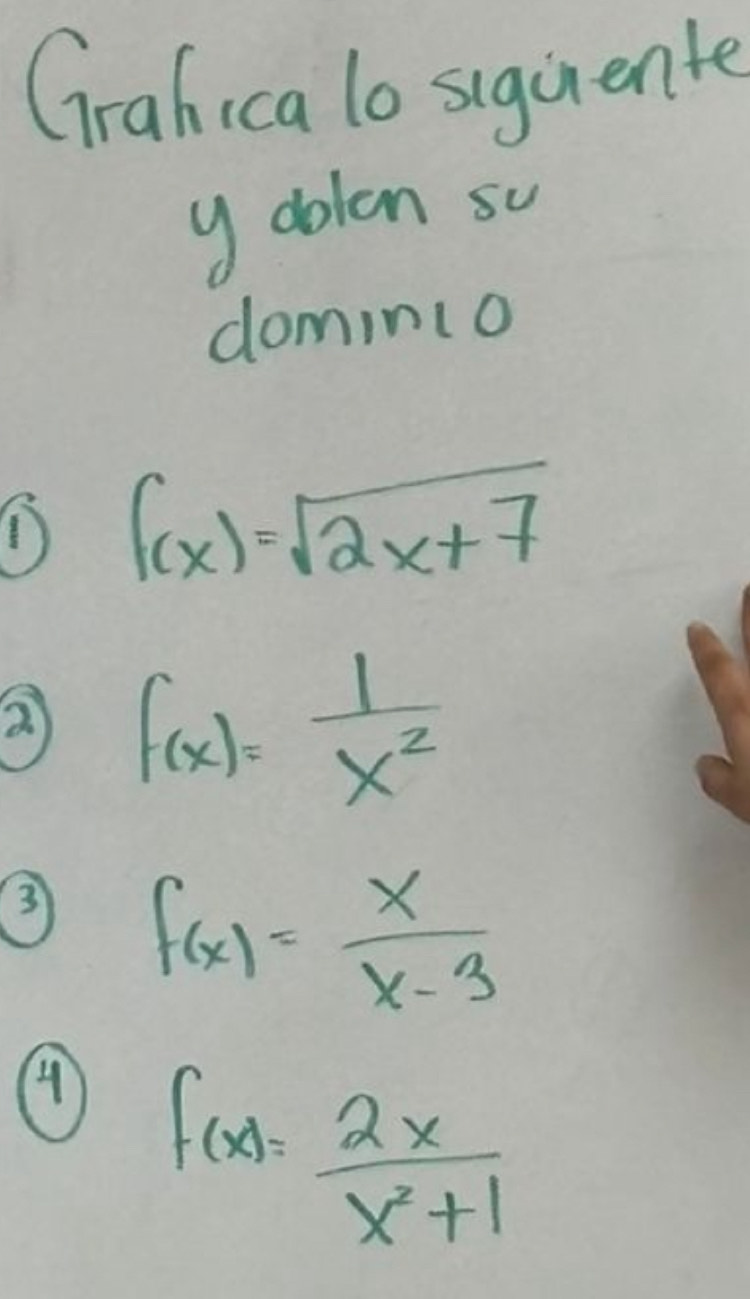 Grafica lo siguiente
y obten su
dominio
① f(x)=√2x+7
② f(x)= 1/x²
③ f(x)= x/x-3
④ f(x)= 2x/x²+1